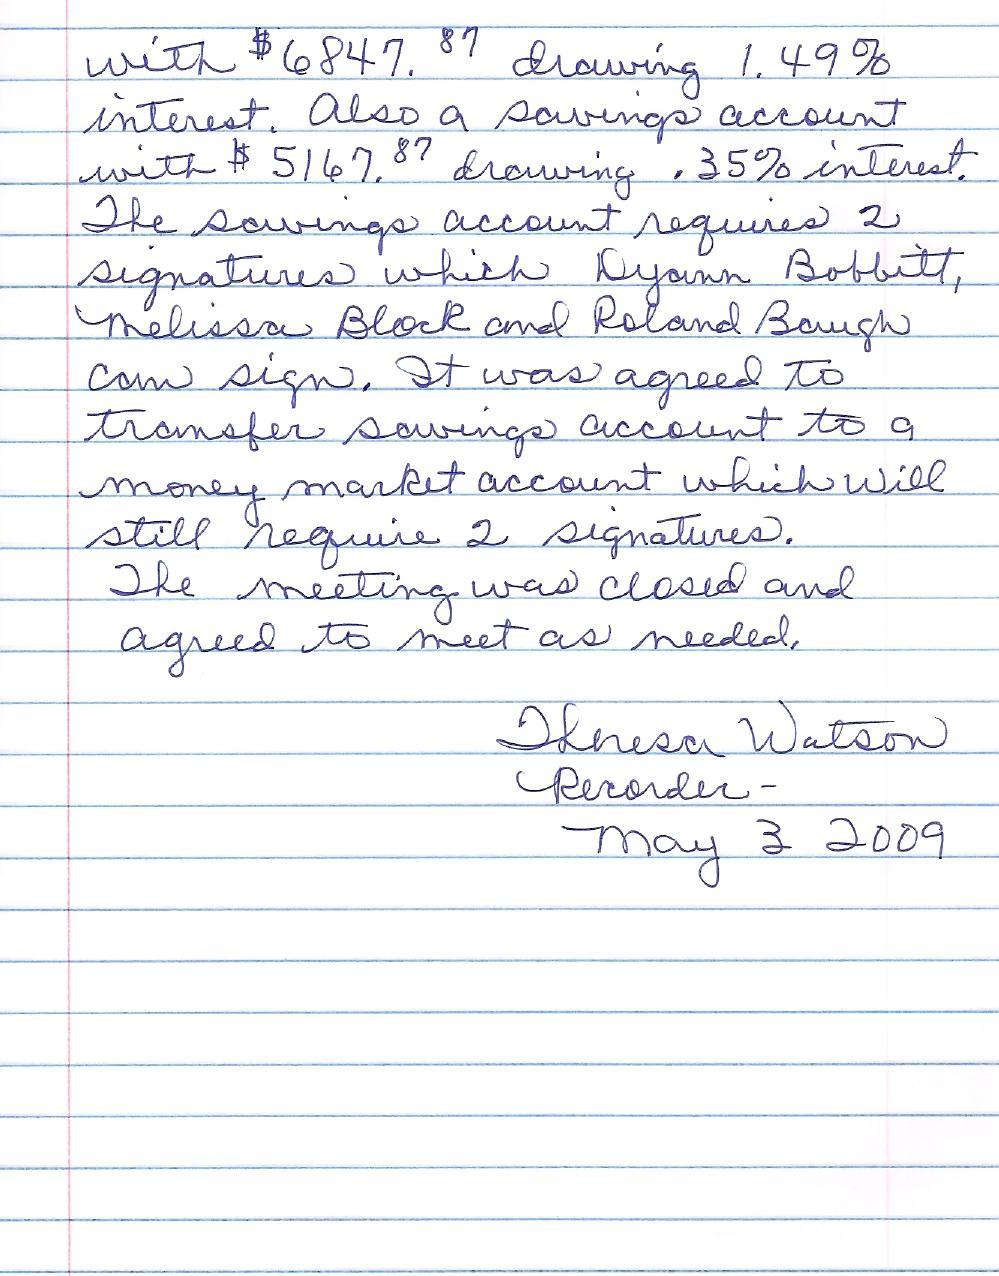 with $6847.87 drawing 1.49%
interest. Also a savings account
with $5167.87 drawing .35% interest.
The savings account requires 2
signatures which Dyann Bobbitt,
Melissa Block and Roland Baugh
can sign. It was agreed to
transfer savings account to a
money market account which will
still require 2 signatures.
The meeting was closed and
agreed to meet as needed.
Theresa Watson
Recorder-
May 3 2009